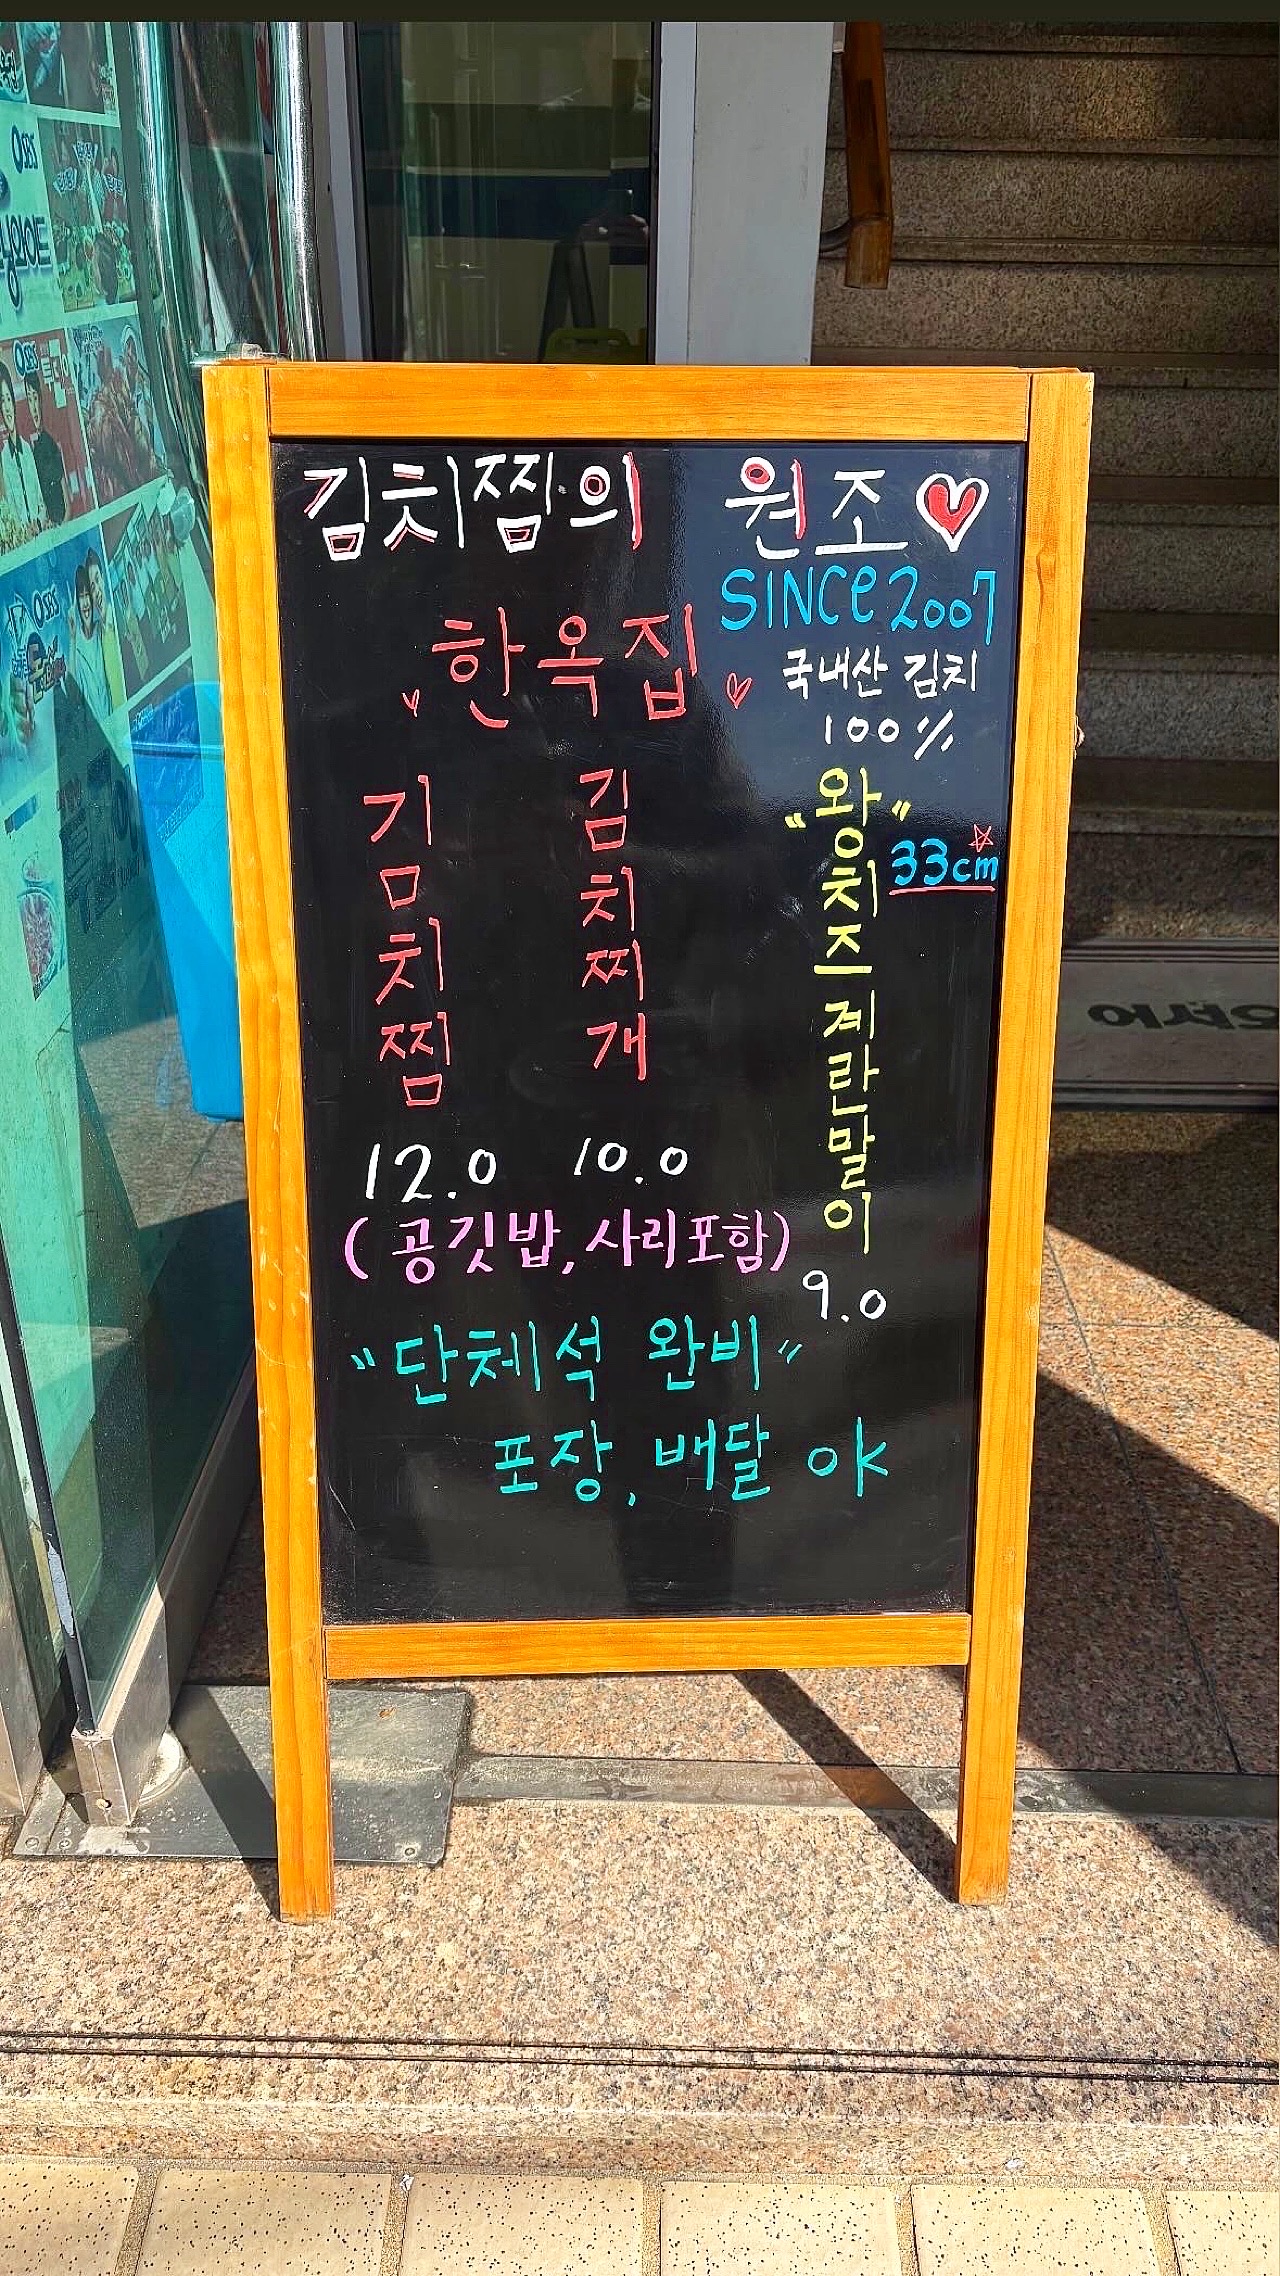 김치찜의 원조
SINCE 2007
한옥집
국내산 김치
100%
김치찜
12.0
김치찌개
10.0
(공깃밥, 사리포함)
"왕치즈계란말이"
33cm
9.0
"단체석 완비"
포장, 배달 OK
SBS
SBS
SBS